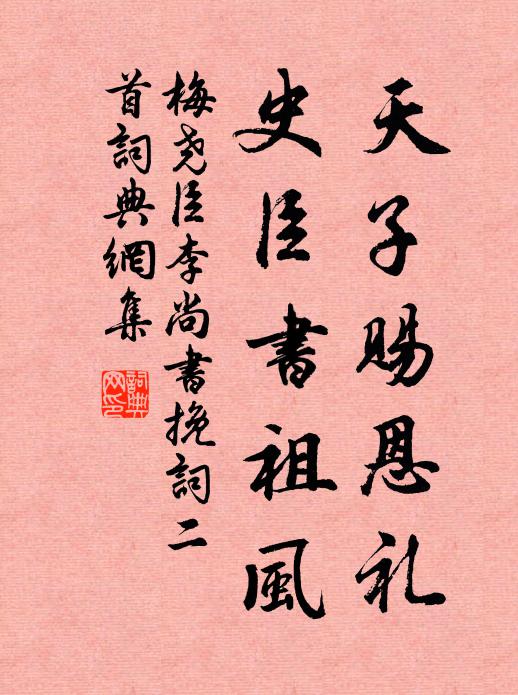 天子賜恩礼
史臣書祖風
梅尧臣李尚書挽詞二
首詞典網集
詞典
网印